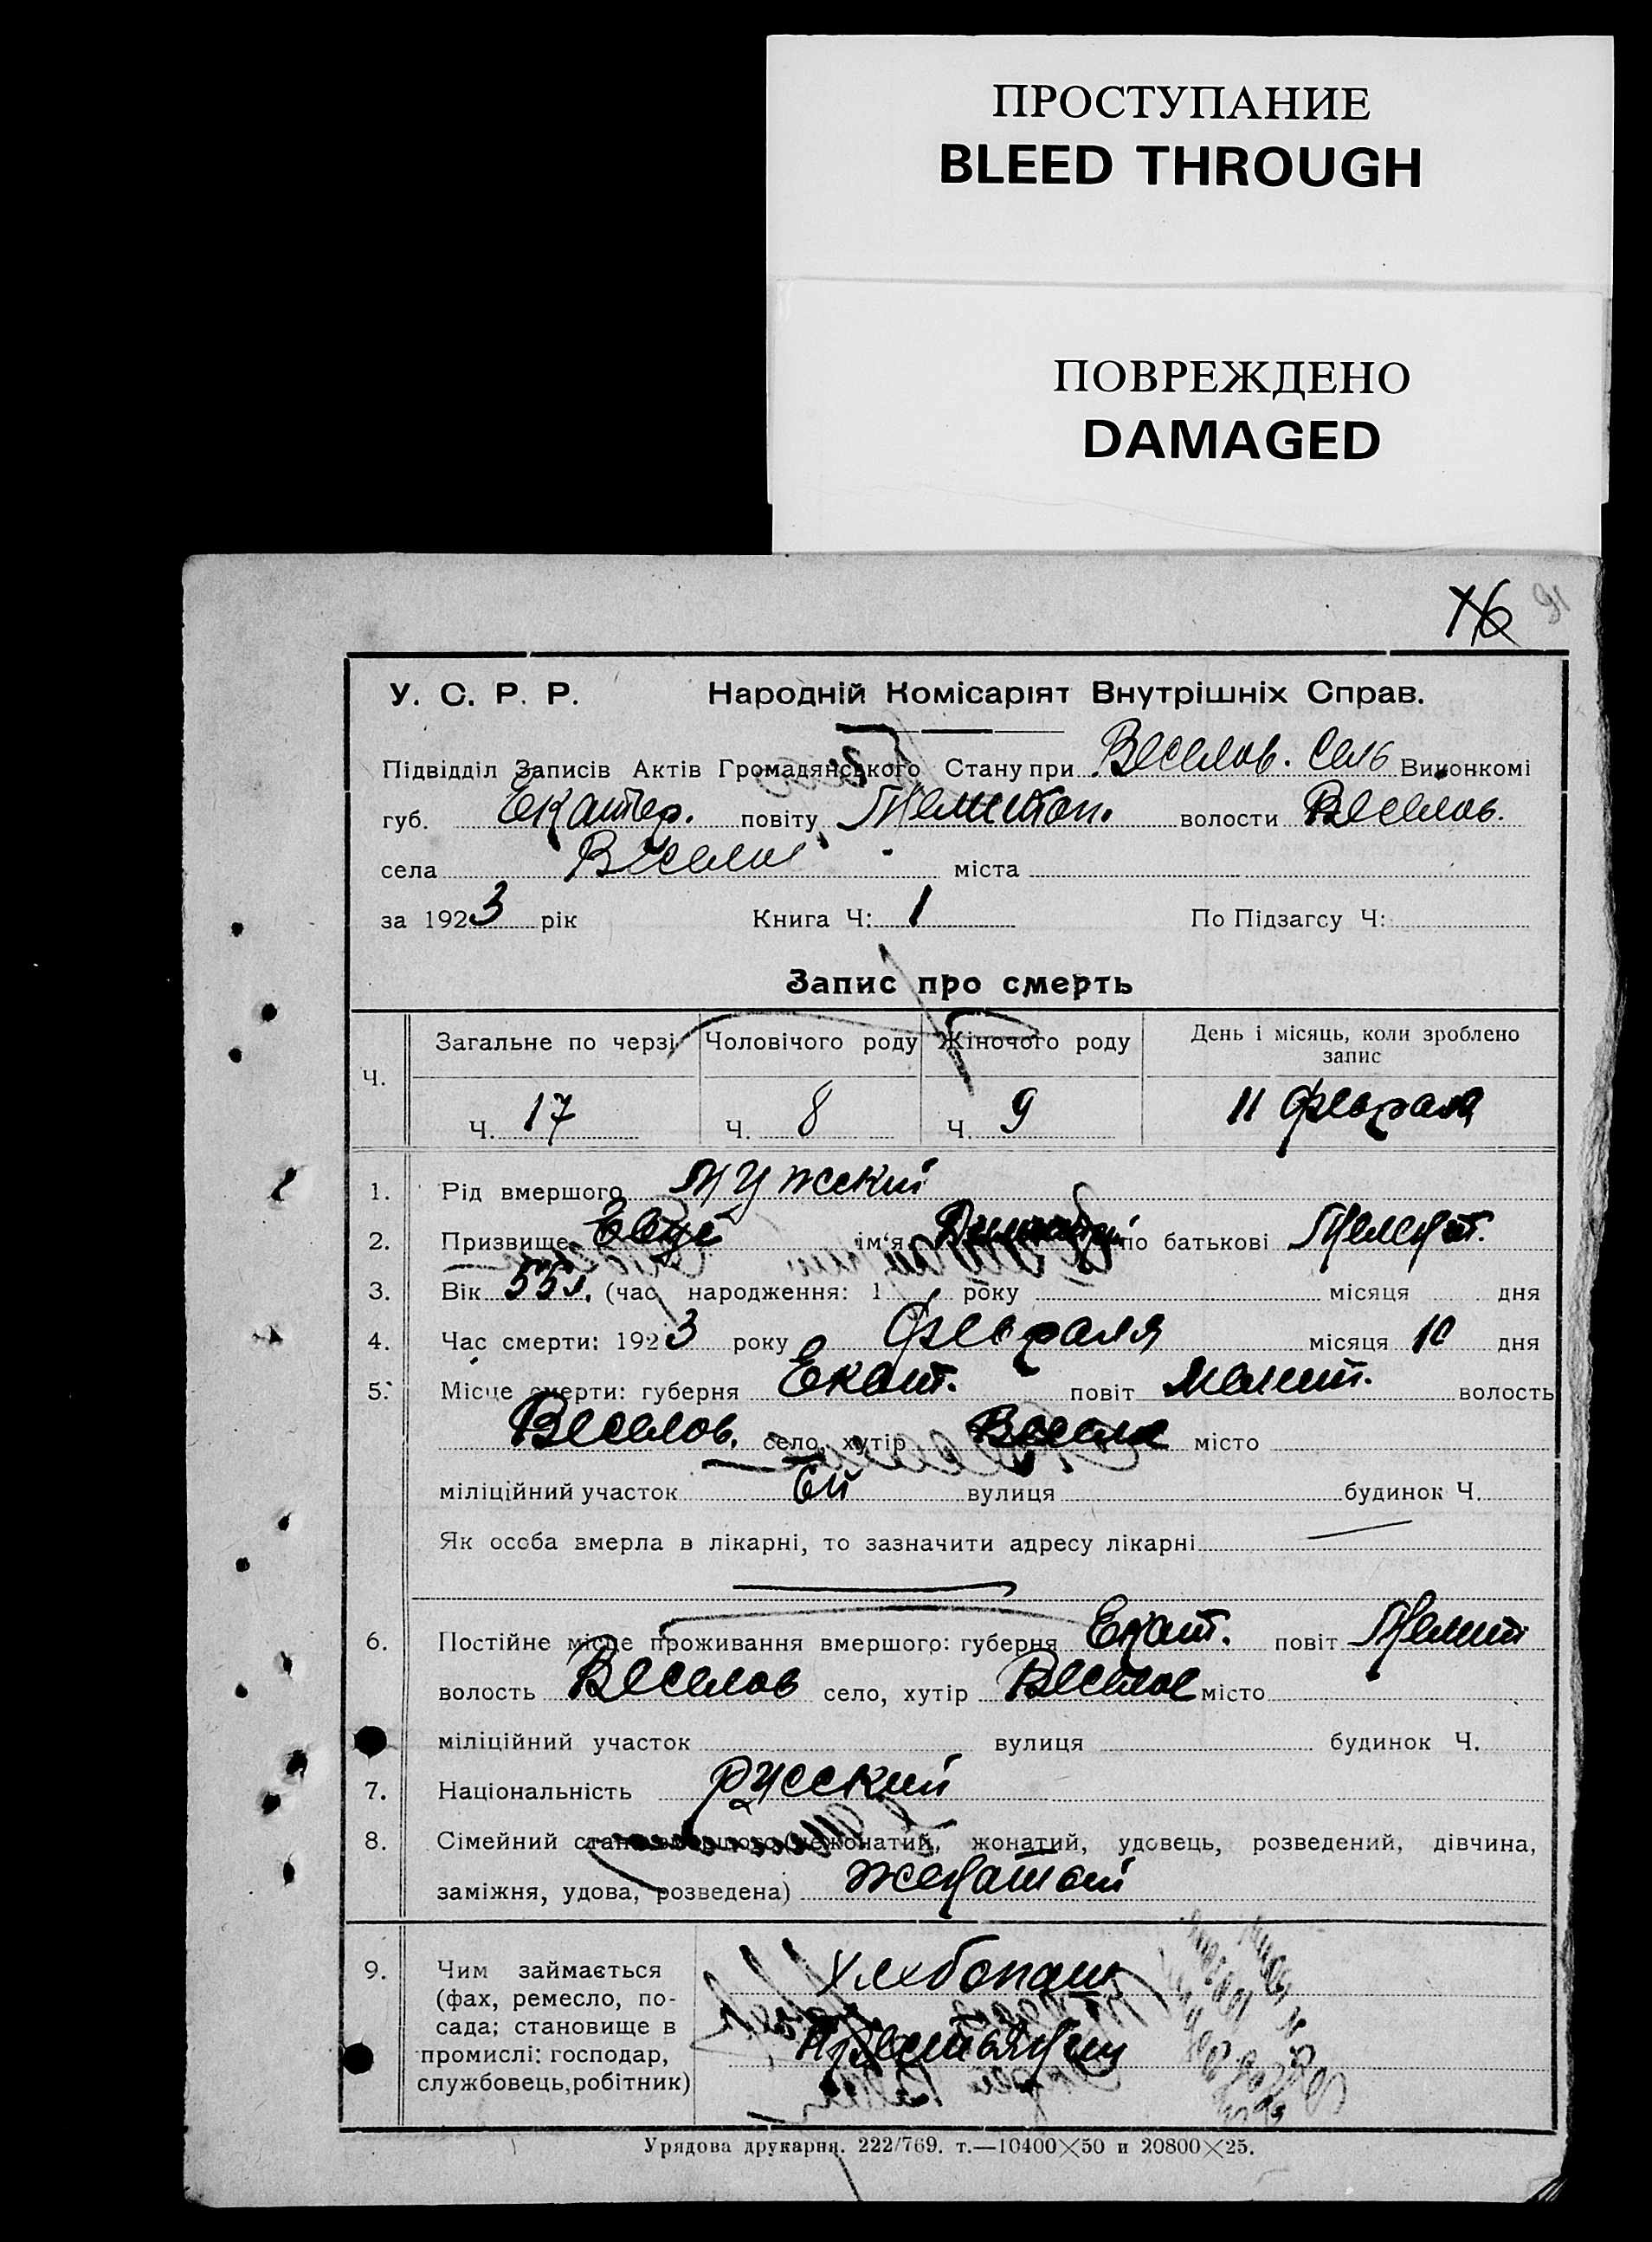 ПРОСТУПАНИЕ
BLEED THROUGH
ПОВРЕЖДЕНО
DAMAGED
16
У. С. Р. Р. Народній Комісаріят Внутрішніх Справ.
Підвідділ Записів Актів Громадянського Стану при Веселов. Сель Виконкомі
губ. Екатер. повіту Мелитоп. волости Веселов.
села Веселое міста
за 1923 рік Книга Ч: 1 По Підзагсу Ч:
Запис про смерть
Ч. Загальне по черзі Чоловічого роду Жіночого роду День і місяць, коли зроблено запис
Ч. 17 Ч. 8 Ч. 9 11 февраля
1. Рід вмершого мужский
2. Призвище ім'я по батькові
3. Вік 55 л. (час народження: 1 року місяця дня
4. Час смерти: 1923 року февраля місяця 10 дня
5. Місце смерти: губерня Екат. повіт Мелит. волость
Веселов. село, хутір Веселое місто
міліційний участок 6й вулиця будинок Ч.
Як особа вмерла в лікарні, то зазначити адресу лікарні
6. Постійне місце проживання вмершого: губерня Екат. повіт Мелит
волость Веселов село, хутір Веселое місто
міліційний участок вулиця будинок Ч.
7. Національність русский
8. Сімейний стан вмершого (нежонатий, жонатий, удовець, розведений, дівчина,
заміжня, удова, розведена) женатый
9. Чим займається Хлебопаш
(фах, ремесло, по-
сада; становище в
промислі: господар,
службовець, робітник)
Урядова друкарня. 222/769. т.—10400×50 и 20800×25.